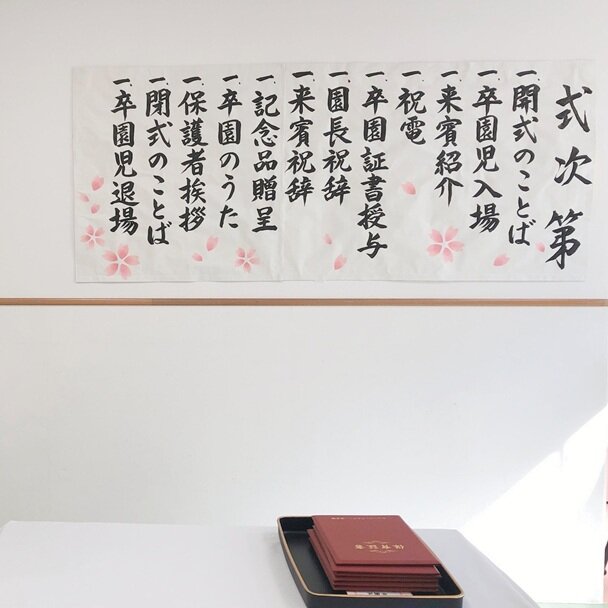 式次第
一、開式のことば
一、卒園児入場
一、来賓紹介
一、祝電
一、卒園証書授与
一、園長祝辞
一、来賓祝辞
一、記念品贈呈
一、卒園のうた
一、保護者挨拶
一、閉式のことば
一、卒園児退場
保育証書